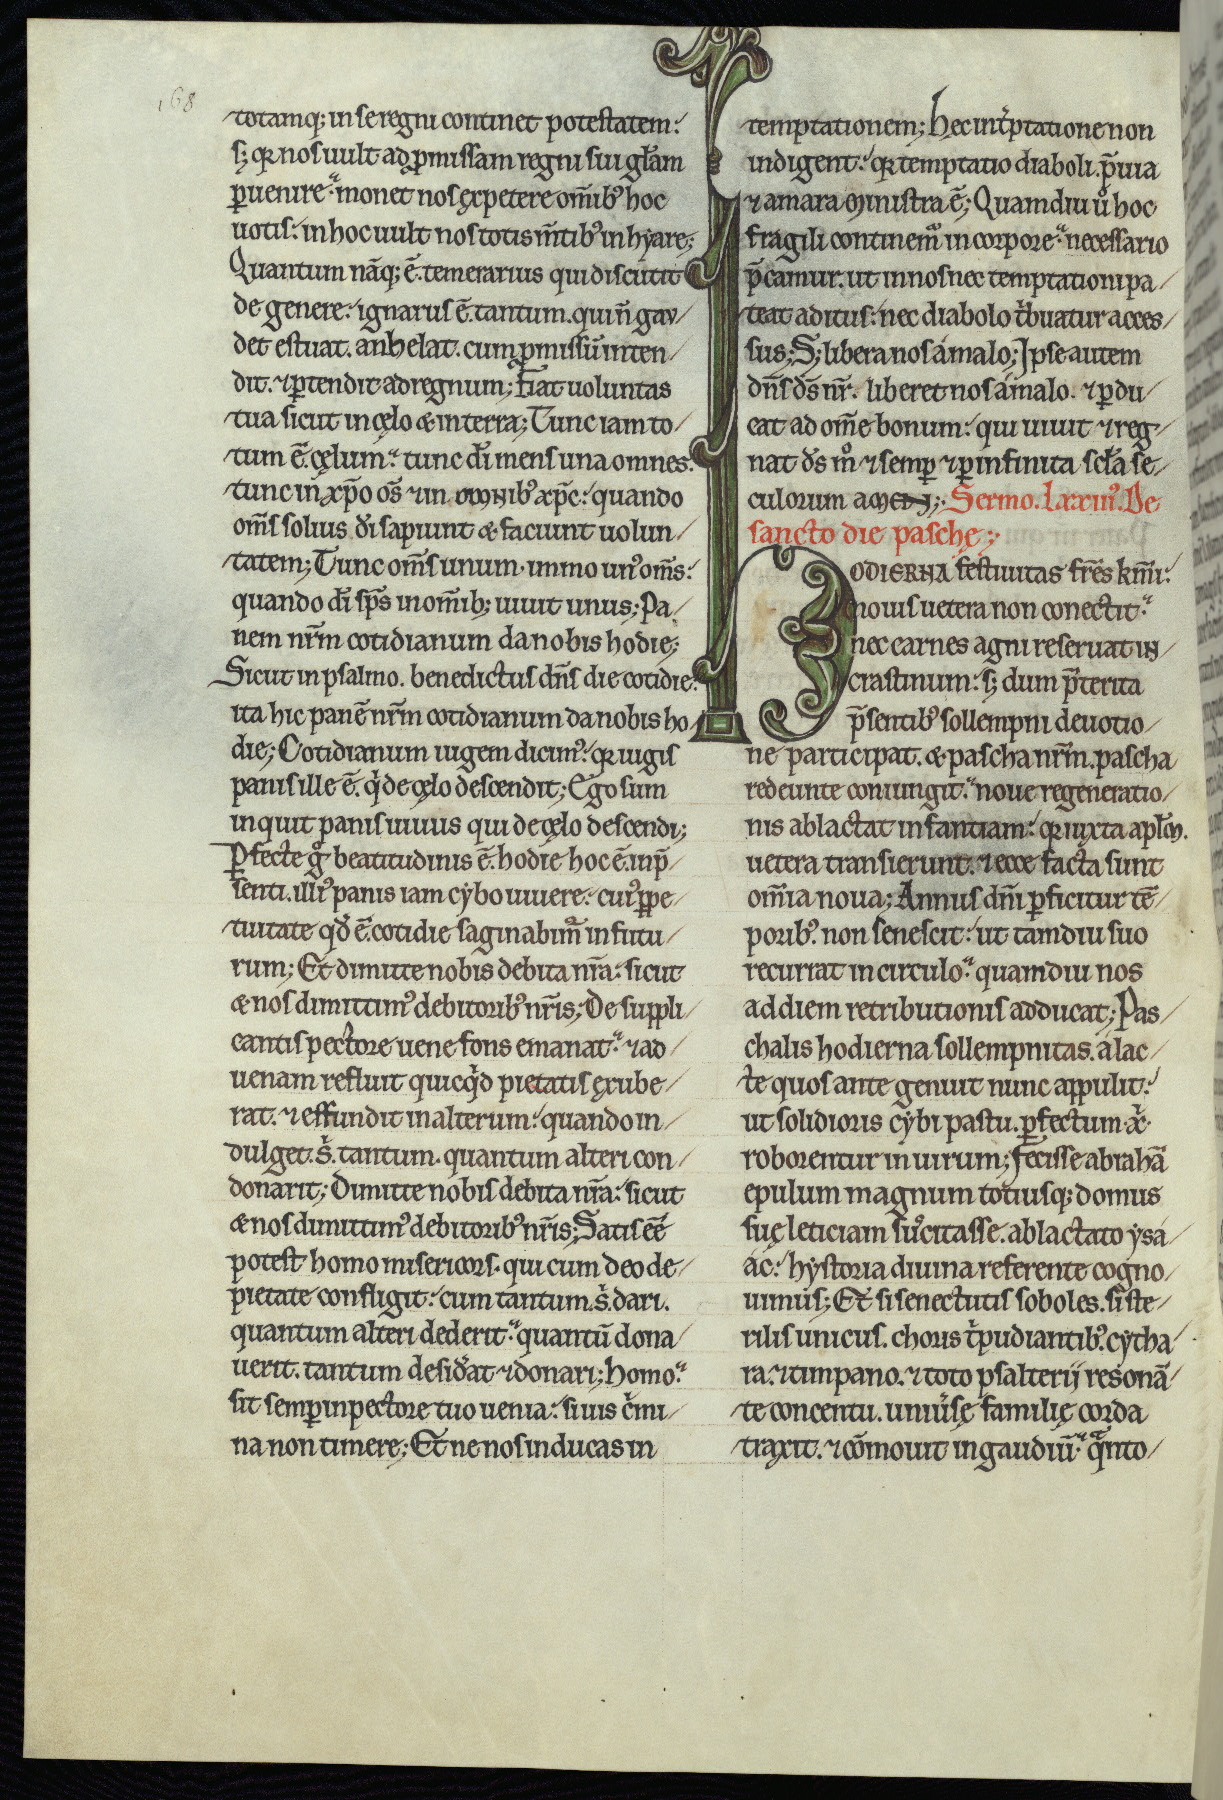 168
totamq; in se regni continet potestatem:
s; qr nos uult ad ꝓmissam regni sui gl̄am
ꝑuenire: monet nos expetere om̄ib' hoc
uotis: in hoc uult nos totis m̄tib' inhyare;
Quantum nāq; ē. temerarius qui discutit
de genere: ignarus ē. tantum. qui n̄ gau/
det estuat. anhelat. cum ꝓmissū inten/
dit. ⁊ ꝑtendit ad regnum; Fiat uoluntas
tua sicut in cęlo & in terra; Tunc iam to/
tum ē. cęlum: tunc d̄i mens una omnes:
tunc in xp̄o om̄s ⁊ in omnib' xp̄c: quando
om̄s solius d̄i sapiunt & faciunt uolun/
tatem; Tunc om̄s unum. immo un' om̄s:
quando d̄i sp̄s in om̄ib; uiuit unus; Pa/
nem nr̄m cotidianum da nobis hodie;
Sicut in psalmo. benedictus dn̄s die cotidie:
ita hic panē nr̄m cotidianum da nobis ho
die; Cotidianum iugem dicim': qr iugis
panis ille ē. q̇ de cęlo descendit; Ego sum
inquit panis uiuus qui de cęlo descendi;
Ꝑfecte g° beatitudinis ē. hodie hoc ē. in p̄
senti. illi' panis iam cybo uiuere: cui' ꝑpe/
tuitate qd̄ ē. cotidie saginabim̄ in futu/
rum; Et dimitte nobis debita nr̄a: sicut
& nos dimittim' debitorib' nr̄is; De suppli/
cantis pectore uene fons emanat: ⁊ ad/
uenam refluit quicq̇d pietatis exube/
rat. ⁊ effundit in alterum: quando in/
dulget. s̄. tantum. quantum alteri con/
donarit; Dimitte nobis debita nr̄a: sicut
& nos dimittim' debitorib' nr̄is; Satis eē
potest homo misericors. qui cum deo de/
pietate confligit: cum tantum. s̄. dari.
quantum alteri dederit: quantū dona/
uerit. tantum desid̄at ⁊ donari; Homo:
sit semꝑ in pectore tuo uenia: si uis c̄mi/
na non timere; Et ne nos inducas in
temptationem; Hec int̄ptatione non
indigent: qr temptatio diaboli. p̄uia
⁊ amara ministra ē; Quamdiu ů hoc
fragili continem̄ in corpore: necessario
p̄camur. ut in nos nec temptationi pa/
teat aditus: nec diabolo t̄buatur acces/
sus; S; libera nos a malo; Ipse autem
dn̄s ds̄ nr̄. liberet nos a malo. ⁊ ꝑdu/
cat ad om̄e bonum: qui uiuit ⁊ reg/
nat ds̄ m° ⁊ semꝑ ⁊ ꝑ infinita scl̄a se/
culorum amen; Sermo. Lxxiii'. De
sancto die paschę;
HODIERNA festiuitas fr̄es km̄i:
nouis uetera non conectit:
nec carnes agni reseruat in
crastinum: s; dum p̄terita
p̄sentib' sollempni deuotio/
ne participat. & pascha nr̄m. pascha
redeunte coniungit: noue regeneratio/
nis ablactat infantiam: qr iuxta apl̄m.
uetera transierunt. ⁊ ecce facta sunt
om̄ia noua; Annus dn̄i ꝑficitur tē/
porib'. non senescit: ut tamdiu suo
recurrat in circulo: quamdiu nos
ad diem retributionis adducat; Pas/
chalis hodierna sollempnitas. a lac/
te quos ante genuit nunc appulit:
ut solidioris cybi pastu. ꝑfectum x̄
roborentur in uirum; Fecisse abrahā
epulum magnum totiusq; domus
suę leticiam su'citasse. ablactato ysa/
ac: hystoria diuina referente cogno/
uimus; Et si senectutis soboles. si ste/
rilis unicus. choris t̄pudiantib'. cytha/
ra. ⁊ timpano. ⁊ toto psalterij resonā/
te concentu. uniūsę familię corda
traxit. ⁊ cōmouit in gaudiū: q̄nto/